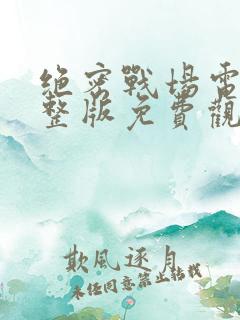 絕密戰場電
整版免費觀
欺風逐月
未經同意禁止轉載